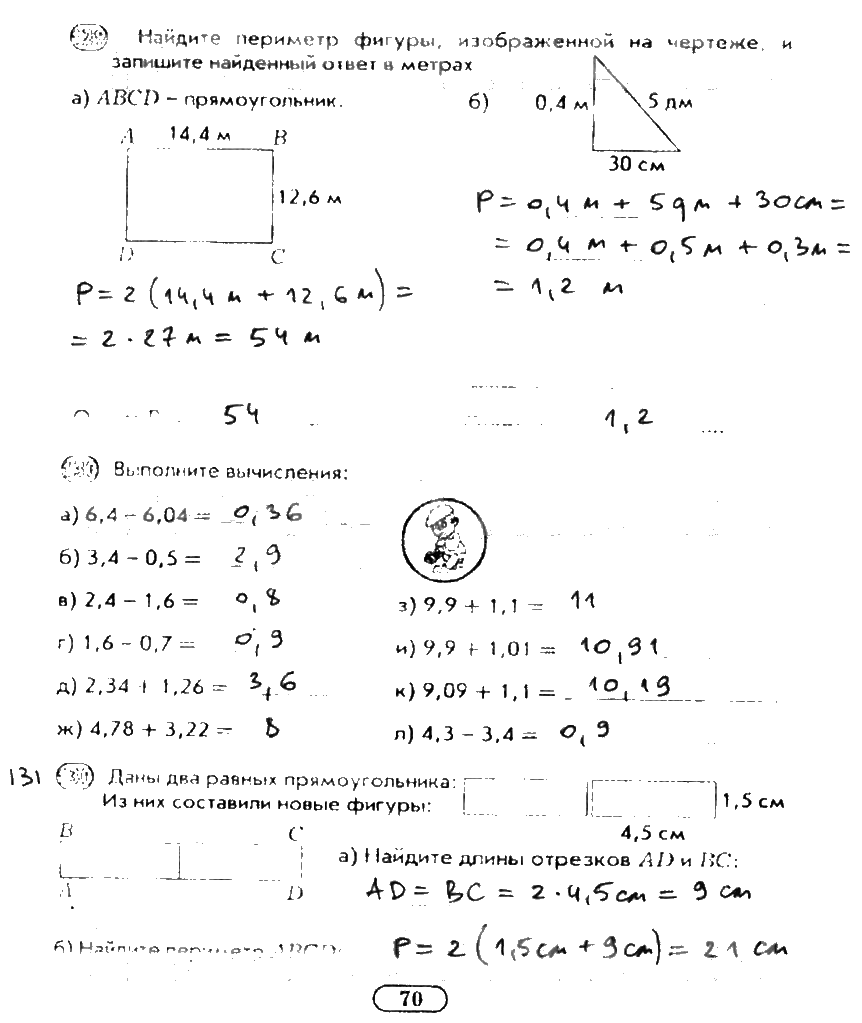 Найдите периметр фигуры, изображенной на чертеже, и
запишите найденный ответ в метрах
а) ABCD – прямоугольник.
б)
0,4 м
5 дм
30 см
A 14,4 м B
12,6 м
D C
P = 2 (14,4 м + 12,6 м) =
= 2 · 27 м = 54 м
P = 0,4 м + 5 дм + 30 см =
= 0,4 м + 0,5 м + 0,3 м =
= 1,2 м
54
1,2
Выполните вычисления:
а) 6,4 – 6,04 = 0,36
б) 3,4 – 0,5 = 2,9
в) 2,4 – 1,6 = 0,8
г) 1,6 – 0,7 = 0,9
д) 2,34 + 1,26 = 3,6
ж) 4,78 + 3,22 = 8
з) 9,9 + 1,1 = 11
и) 9,9 + 1,01 = 10,91
к) 9,09 + 1,1 = 10,19
л) 4,3 – 3,4 = 0,9
131 Даны два равных прямоугольника:
Из них составили новые фигуры:
1,5 см
4,5 см
B C
A D
а) Найдите длины отрезков AD и BC:
AD = BC = 2 · 4,5 см = 9 см
б) Найдите периметр ABCD:
P = 2 (1,5 см + 9 см) = 21 см
70